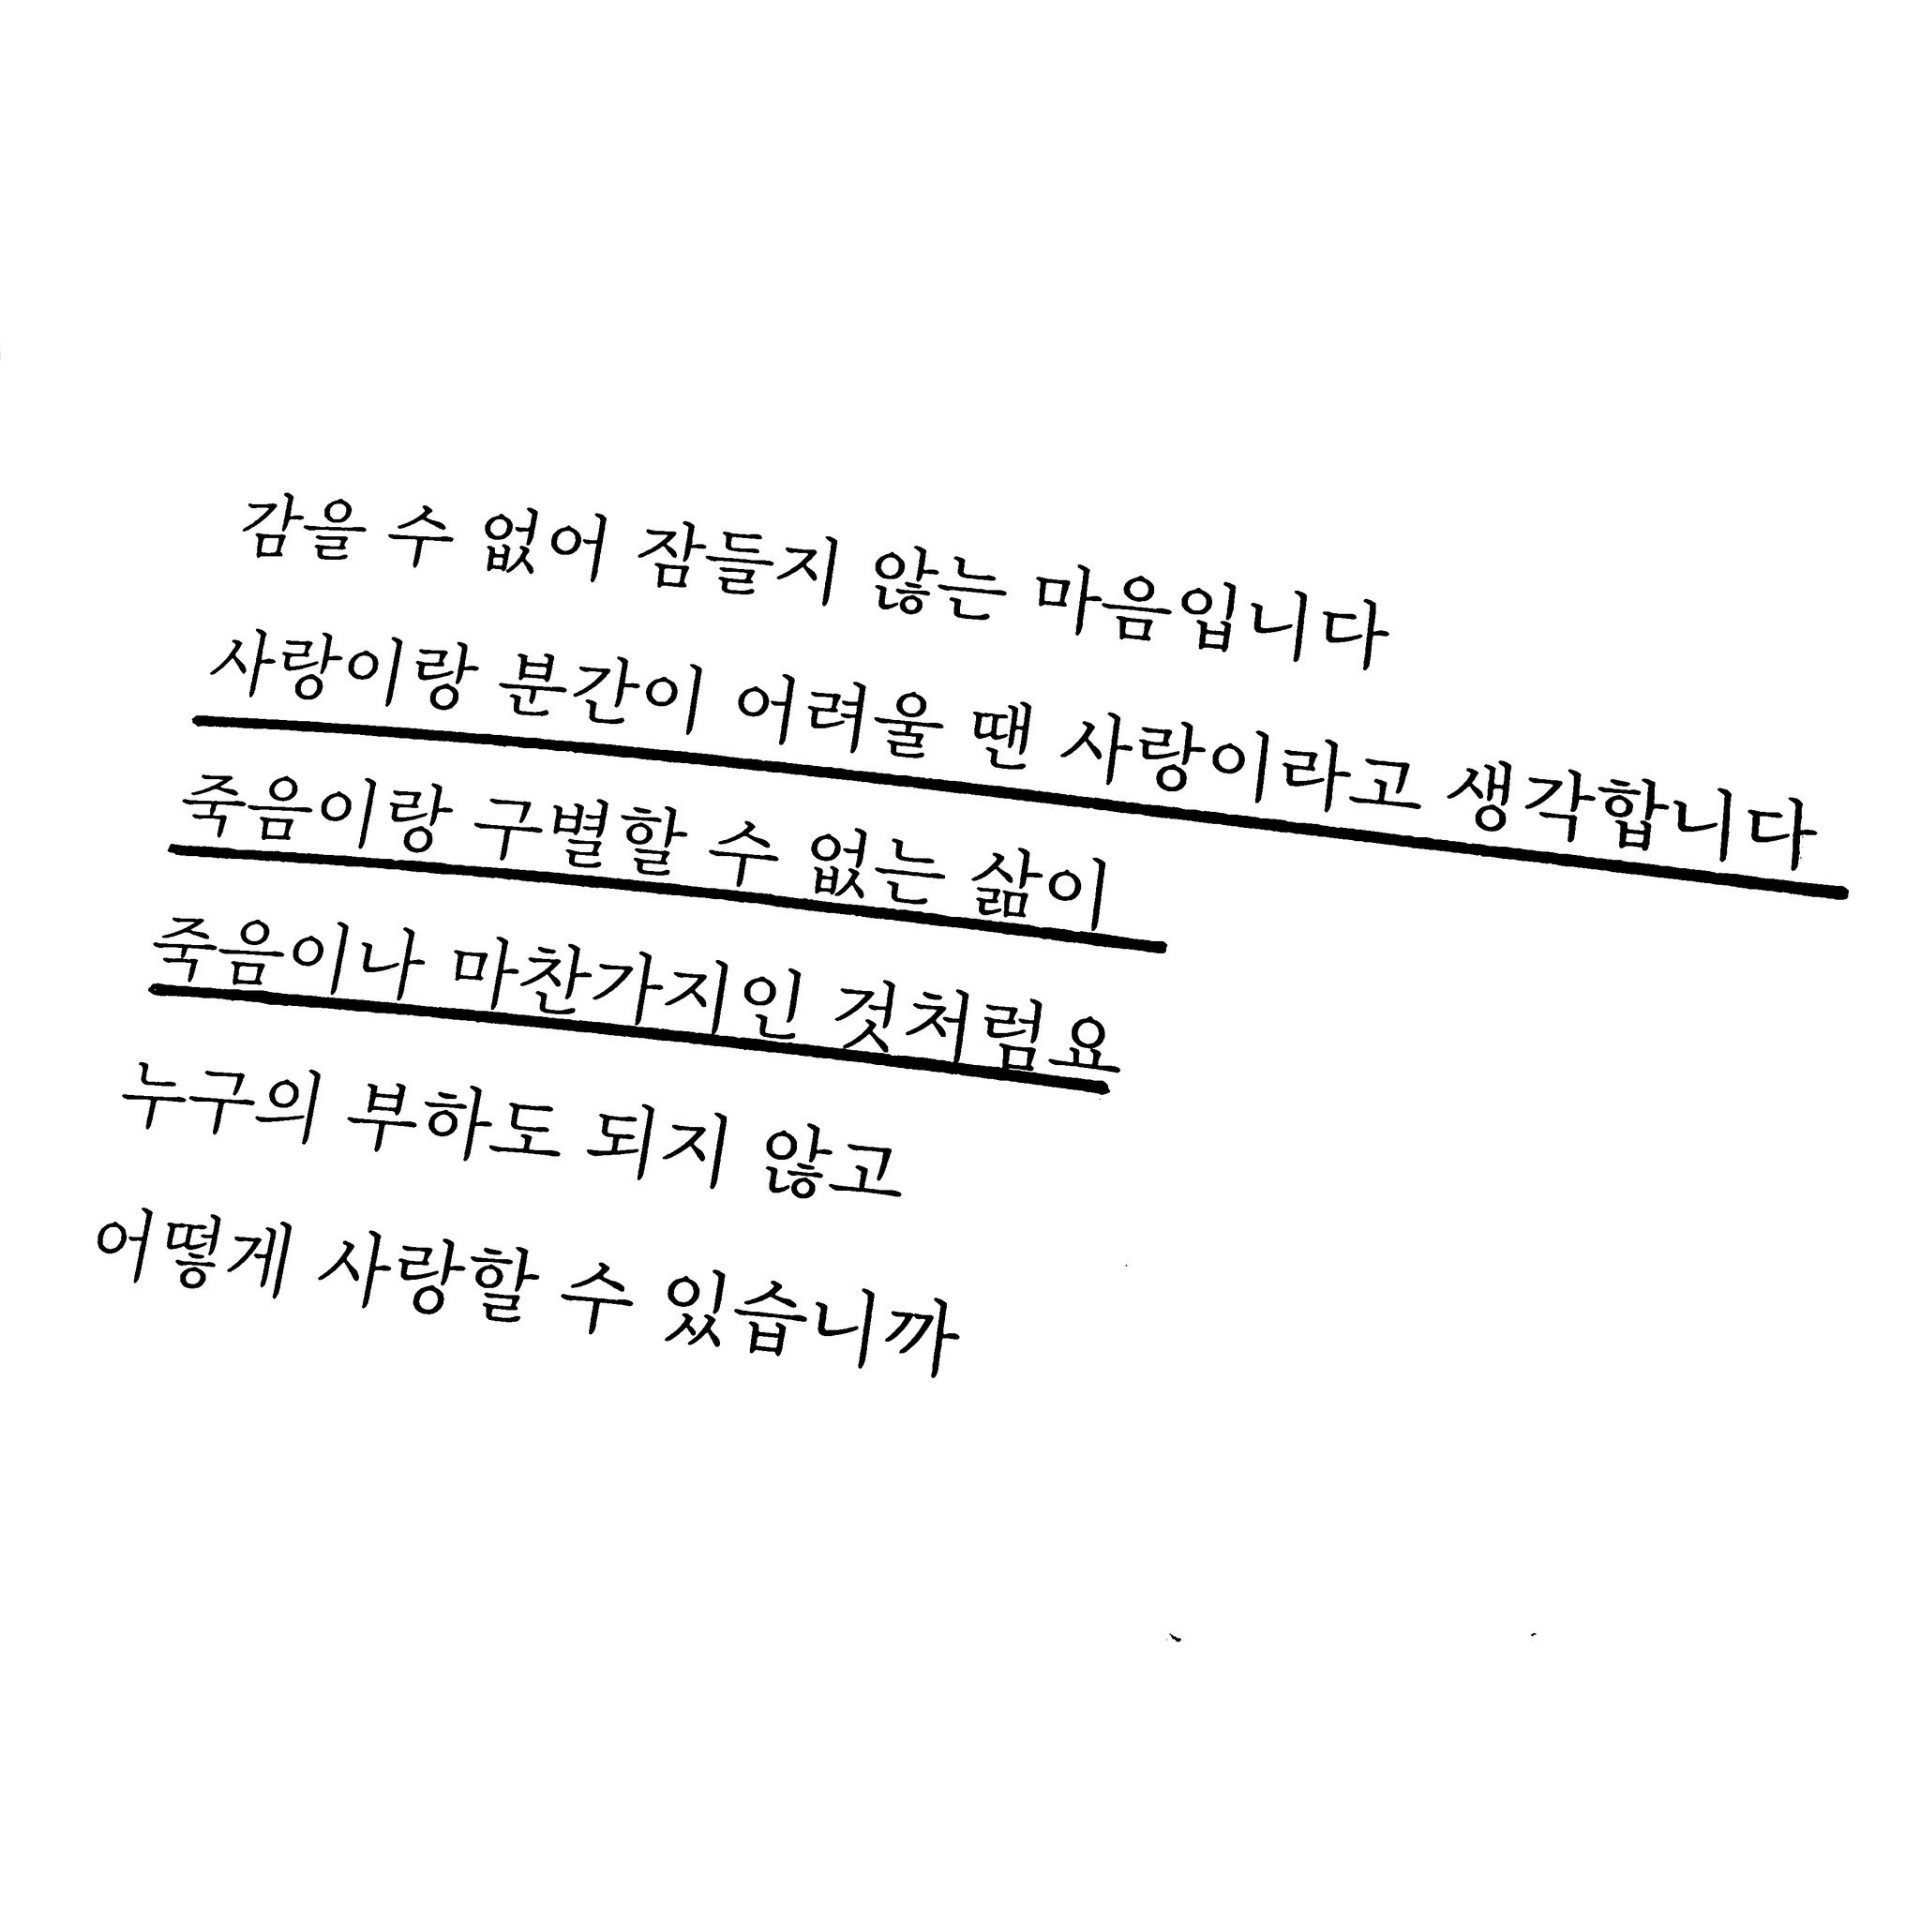 감을 수 없어 잠들지 않는 마음입니다
사랑이랑 분간이 어려울 땐 사랑이라고 생각합니다
죽음이랑 구별할 수 없는 삶이
죽음이나 마찬가지인 것처럼요
누구의 부하도 되지 않고
어떻게 사랑할 수 있습니까